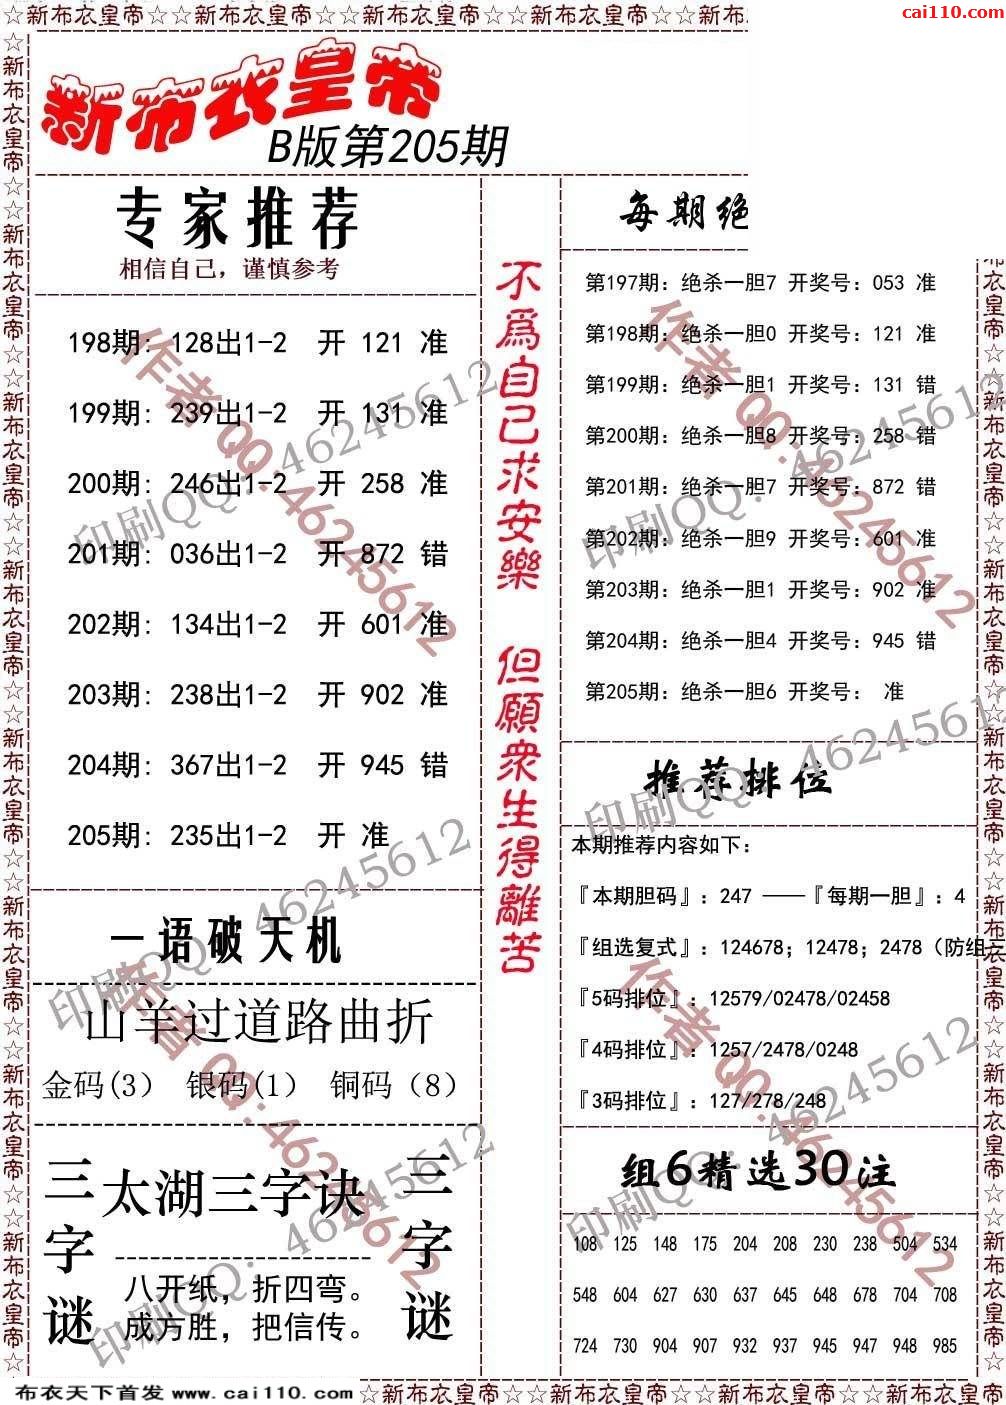 ☆新布衣皇帝☆☆新布衣皇帝☆☆新布衣皇帝☆☆新布衣皇帝☆☆新布
cai110.com
新布衣皇帝
B版第205期
专家推荐
相信自己，谨慎参考
198期: 128出1-2 开 121 准
199期: 239出1-2 开 131 准
200期: 246出1-2 开 258 准
201期: 036出1-2 开 872 错
202期: 134出1-2 开 601 准
203期: 238出1-2 开 902 准
204期: 367出1-2 开 945 错
205期: 235出1-2 开 准
一语破天机
山羊过道路曲折
金码(3) 银码(1) 铜码（8）
三字谜
太湖三字诀
八开纸，折四弯。
成方胜，把信传。
三字谜
不為自己求安樂 但願衆生得離苦
每期绝
第197期: 绝杀一胆7 开奖号: 053 准
第198期: 绝杀一胆0 开奖号: 121 准
第199期: 绝杀一胆1 开奖号: 131 错
第200期: 绝杀一胆8 开奖号: 258 错
第201期: 绝杀一胆7 开奖号: 872 错
第202期: 绝杀一胆9 开奖号: 601 准
第203期: 绝杀一胆1 开奖号: 902 准
第204期: 绝杀一胆4 开奖号: 945 错
第205期: 绝杀一胆6 开奖号: 准
推荐排位
本期推荐内容如下:
『本期胆码』: 247 ——『每期一胆』: 4
『组选复式』: 124678; 12478; 2478（防组三
『5码排位』: 12579/02478/02458
『4码排位』: 1257/2478/0248
『3码排位』: 127/278/248
组6精选30注
108 125 148 175 204 208 230 238 504 534
548 604 627 630 637 645 648 678 704 708
724 730 904 907 932 937 945 947 948 985
作者QQ:46245612
印刷QQ: 46245612
作者QQ:46245612
印刷QQ: 46245612
印刷QQ: 46245612
印刷QQ: 46245612
作者QQ:46245612
印刷QQ: 46245612
作者QQ:46245612
印刷QQ: 46245612
布衣天下首发 www.cai110.com
☆新布衣皇帝☆☆新布衣皇帝☆☆新布衣皇帝☆☆新布衣皇帝☆